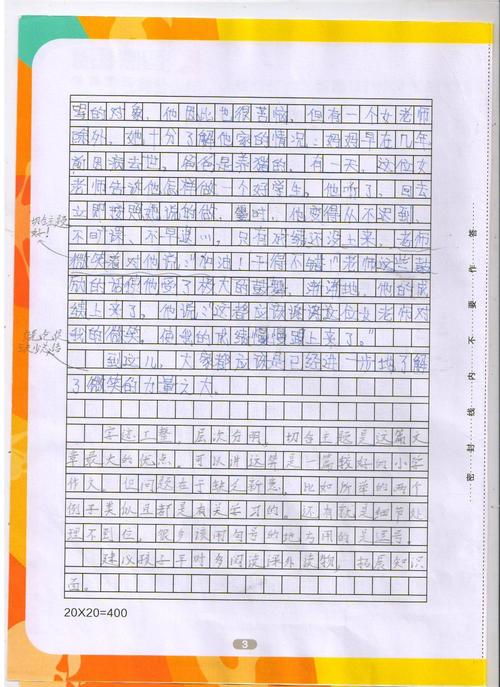 的对象，他因此也很苦恼，但有一个女老师
除外，她十分了解他家的情况：妈妈早在几年
前因病去世，爸爸是养猪的，有一天，这位女
老师告诉他怎样做一个好学生，他听了，回去
立即按照她说的做，他变得从不迟到，
不旷课、不早退，只有成绩还没上来，老师
切合主题
微笑着对他说：“加油！干得不错！”老师这些鼓
励的话使他受了极大的鼓舞，渐渐地，他的成
绩上来了。他说：“这都应该谢谢这位女老师对
我的微笑，使我的成绩慢慢跟上来了。”
到这儿，大家都应该是已经进一步地了解
了微笑的力量之大。
字迹工整，层次分明，切合主题是这篇文
章最大的优点。可以讲这算是一篇较好的小学
作文。但问题在于缺乏新意，比如所举的两个
例子类似且都是有关学习的。还有就是细节处
理不到位，很多该用句号的地方用的是逗号。
建议孩子平时多阅读课外读物，拓展知识
面。
20X20=400
3
密封线内不要作答